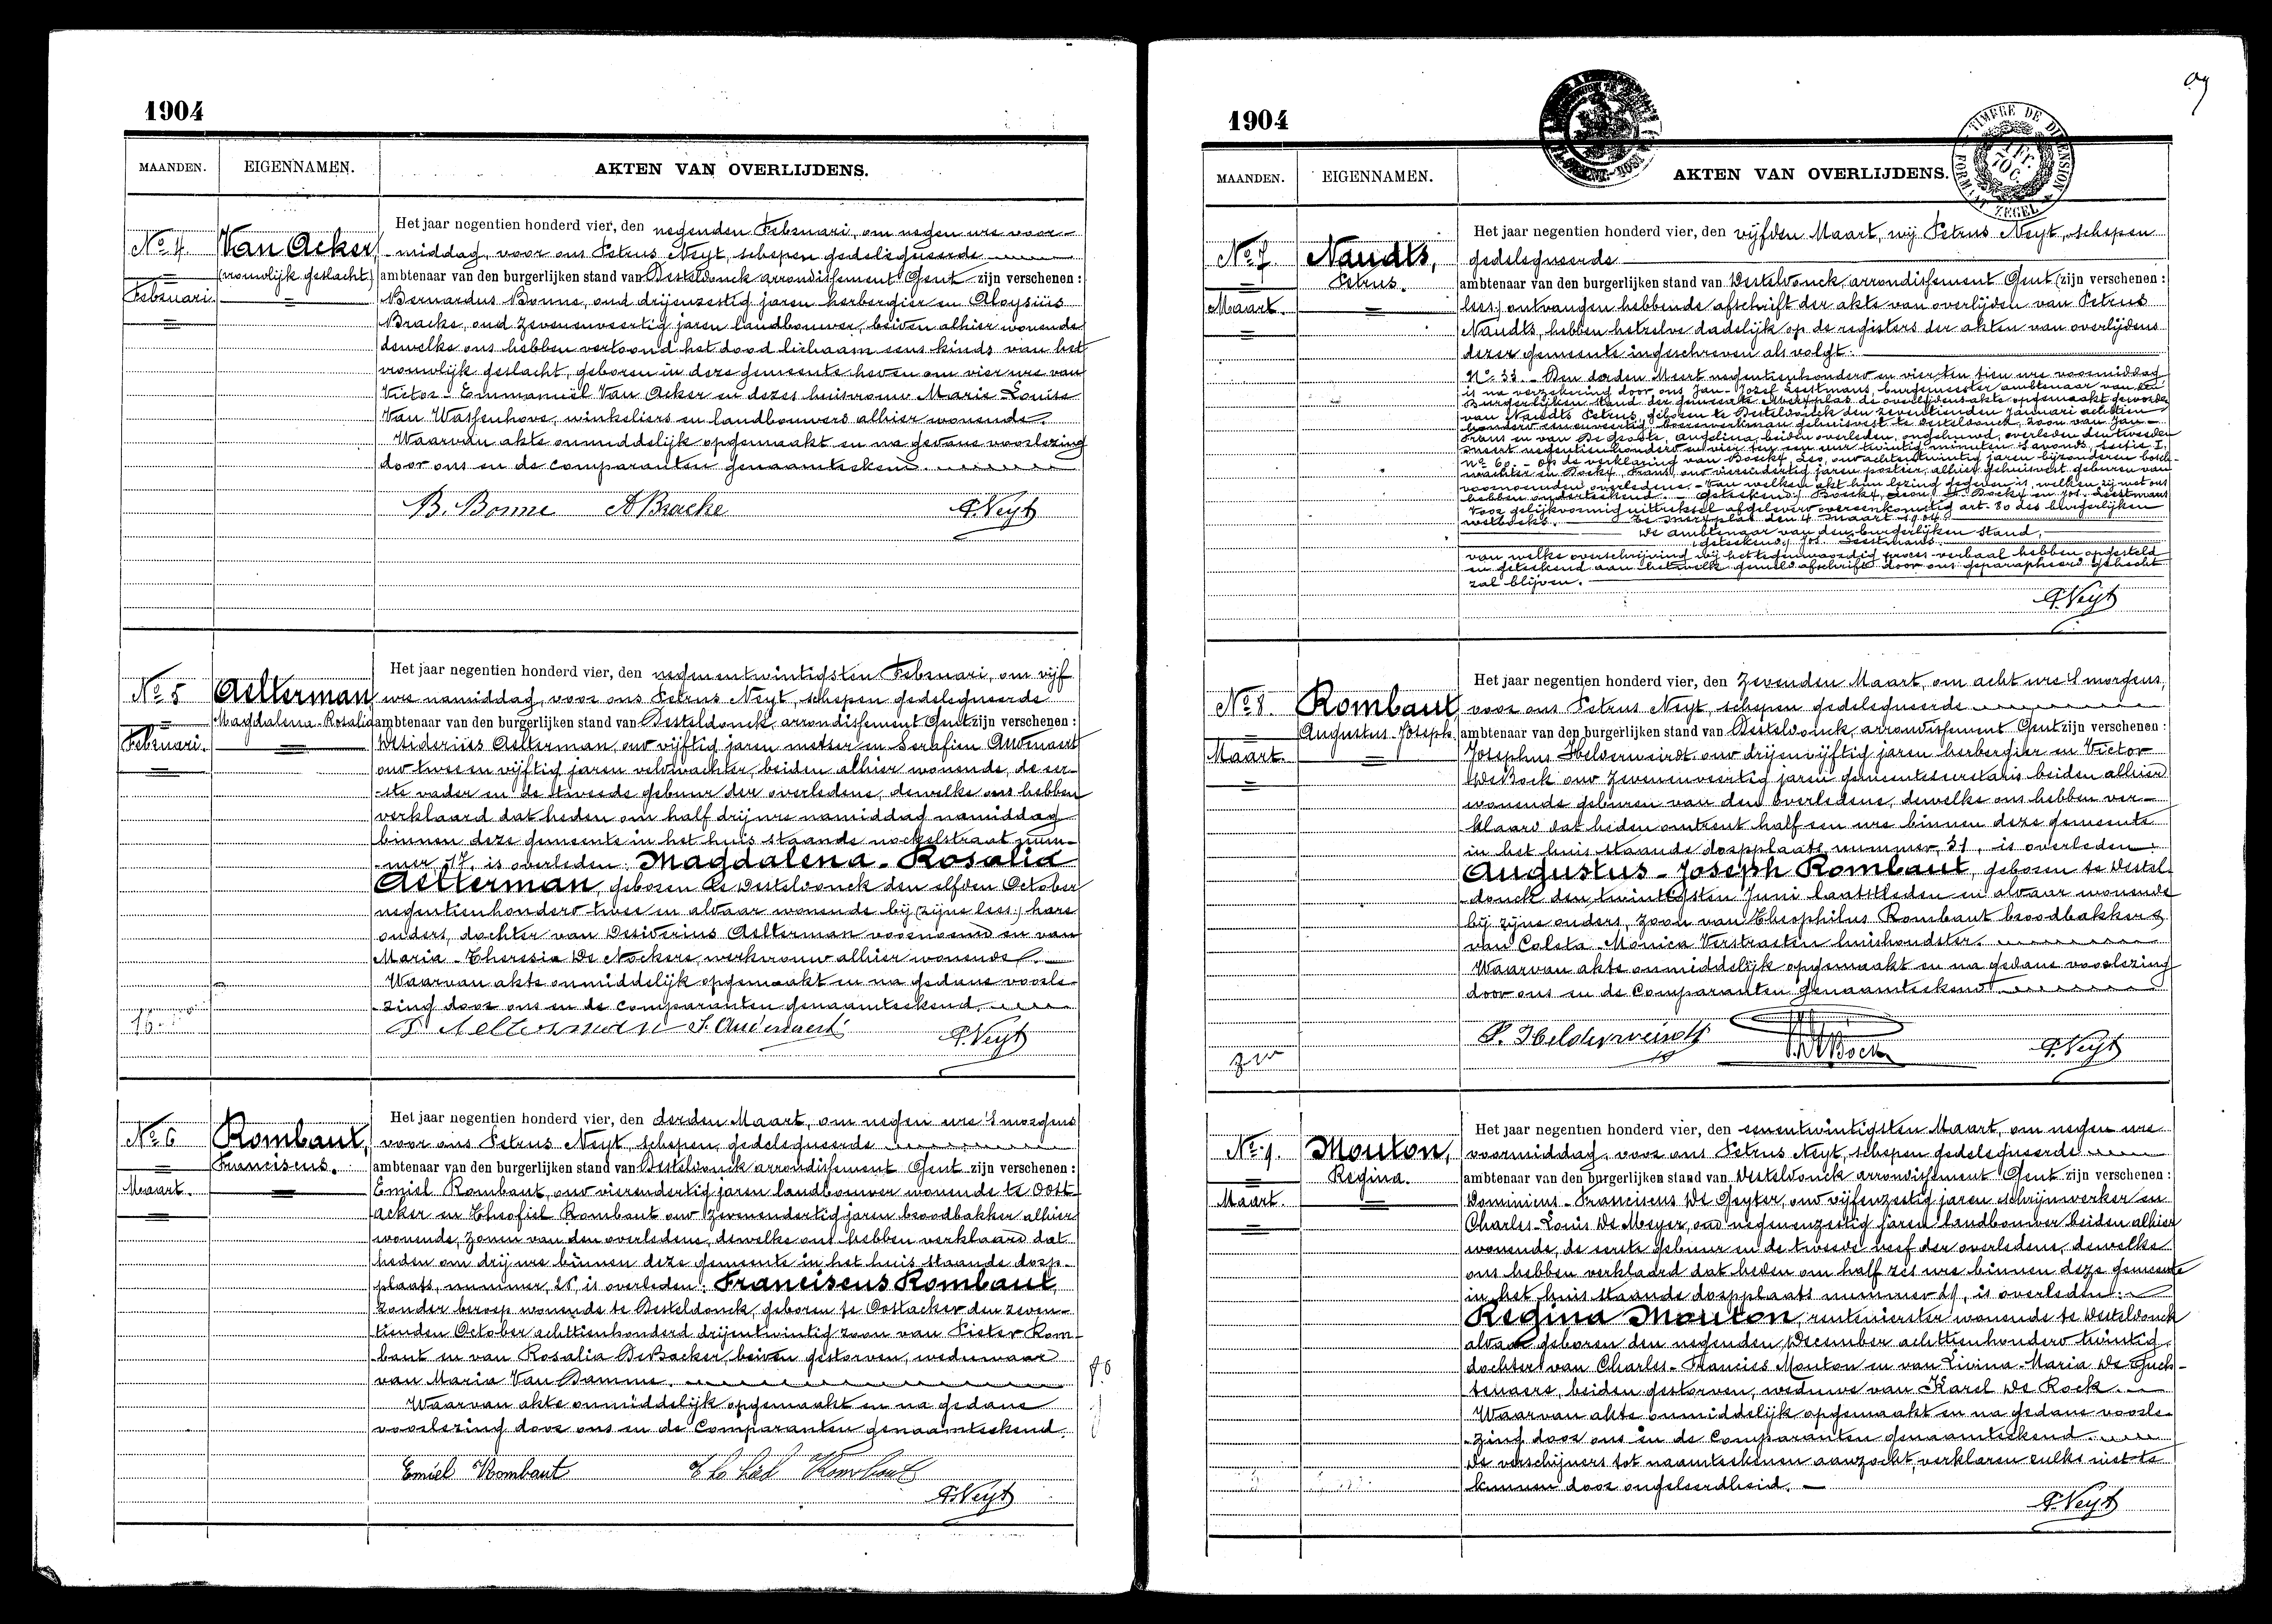 1904
MAANDEN. EIGENNAMEN. AKTEN VAN OVERLIJDENS.
No. 4. Van Acker,
(vrouwlijk geslacht)
Februari.
Het jaar negentien honderd vier, den negenden Februari, om negen ure voor-
middag, voor ons Petrus Neyt, schepen gedelegueerde
ambtenaar van den burgerlijken stand van Desteldonck arrondissement Gent zijn verschenen :
Bernardus Bonne, oud drijenzestig jaren herbergier en Aloysius
Bracke, oud zevenenveertig jaren landbouwer, beiden alhier wonende
dewelke ons hebben vertoond het dood lichaam eens kinds van het
vrouwlijk geslacht, geboren in deze gemeente heden om vier ure van
Victor-Emmanuel Van Acker en dezes huisvrouw Marie Louise
Van Wassenhove, winkeliers en landbouwers alhier wonende.
Waarvan akte onmiddelijk opgemaakt en na gedane voorlezing
door ons en de comparanten genaamteekend.
B. Bonne A Bracke P. Neyt
No. 5 Aelterman
Magdalena-Rosalia
Februari.
Het jaar negentien honderd vier, den negenentwintigsten Februari, om vijf
ure namiddag, voor ons Petrus Neyt, schepen gedelegueerde
ambtenaar van den burgerlijken stand van Desteldonck, arrondissement Gent zijn verschenen :
Desiderius Aelterman, oud vijftig jaren metser en Serafien Audenaert
oud twee en vijftig jaren veldwachter, beiden alhier wonende, de eer-
-ste vader en de tweede gebuur der overledene, dewelke ons hebben
verklaard dat heden om half drij ure namiddag namiddag
binnen deze gemeente in het huis staande nockelstraat num-
-mer 17, is overleden: Magdalena-Rosalia
Aelterman, geboren te Desteldonck den elfden October
negentienhonderd twee en aldaar wonende bij (zijne lees:) hare
ouders, dochter van Desiderius Aelterman voornoemd en van
Maria-Theresia De Nockere, werkvrouw alhier wonende.
Waarvan akte onmiddelijk opgemaakt en na gedane voorle-
-zing door ons en de comparanten genaamteekend.
D. Aelterman S. Audenaert P. Neyt
No. 6 Rombaut,
Franciscus.
Maart.
Het jaar negentien honderd vier, den derden Maart, om negen ure 's morgens
voor ons Petrus Neyt, schepen, gedelegueerde
ambtenaar van den burgerlijken stand van Desteldonck arrondissement Gent zijn verschenen :
Emiel Rombaut, oud vierendertig jaren landbouwer wonende te Oost-
acker en Theofiel Rombaut oud zevenendertig jaren broodbakker alhier
wonende, zonen van den overledene, dewelke ons hebben verklaard dat
heden om drij ure binnen deze gemeente in het huis staande dorp-
plaats, nummer, is overleden: Franciscus Rombaut,
zonder beroep wonende te Desteldonck, geboren te Oostacker den zeven-
tienden October achttienhonderd drijentwintig zoon van Pieter Rom-
baut en van Rosalia De Backer, beiden gestorven, weduwaar
van Maria Van Damme.
Waarvan akte onmiddelijk opgemaakt en na gedane
voorlezing door ons en de Comparanten genaamteekend.
Emiel Rombaut Theofiel Rombaut
P. Neyt
1904
TIMBRE DE DIMENSION
1 Fr. 70 C.
FORMAAT ZEGEL
MAANDEN. EIGENNAMEN. AKTEN VAN OVERLIJDENS.
No. 7 Naudts,
Petrus.
Maart.
Het jaar negentien honderd vier, den vijfden Maart, wij Petrus Neyt, schepen
gedelegueerde
ambtenaar van den burgerlijken stand van Desteldonck, arrondissement Gent (zijn verschenen :
lees:) ontvangen hebbende afschrift der akte van overlijden van Petrus
Naudts, hebben hetzelve dadelijk op de registers der akten van overlijdens
dezer gemeente ingeschreven als volgt:
No. 33. - Den derden Meert negentienhonderd en vier, ten tien ure voormiddag
is na verzekering door ons Jan Jozef Leestmans burgemeester ambtenaar van den
Burgerlijken Stand der gemeente Merxplas de overlijdensakte opgemaakt geworden
van Naudts Petrus, geboren te Desteldonck den zeventienden Januari achttien
honderd eenenveertig, boerenwerkman gehuisvest te Desteldonck, zoon van Jan
Frans en van De Groote, Angelina, beiden overleden, ongehuwd, overleden den tweeden
meert negentienhonderd en vier ten een uur twintig minuten 's avonds, sectie I.
No. 60. - Op de verklaring van Boeckx, Leo, oud achtentwintig jaren bijzonderen bosch-
wachter en Boeckx, Frans, oud vierendertig jaren postier, alhier gehuisvest geburen van
voornoemden overledene. - Van welken akt hun lezing gegeven is, welken zij met ons
hebben onderteekend. - Geteekend) Boeckx, Leon, F. Boeckx en Jos. Leestmans
Voor gelijkvormig uittreksel afgeleverd overeenkomstig art. 80 des burgerlijken
wetboeks. - Te Merxplas den 4 maart 1904.
De ambtenaar van den burgerlijken stand,
(geteekend) Jos. Leestmans.
van welke overschrijving wij het tegenwoordig proces-verbaal hebben opgesteld
en geteekend aan hetwelk gemeld afschrift door ons geparapheerd gehecht
zal blijven.
P. Neyt
No. 8. Rombaut,
Augustus-Joseph.
Maart.
Het jaar negentien honderd vier, den zevenden Maart, om acht ure 's morgens,
voor ons Petrus Neyt, schepen gedelegueerde
ambtenaar van den burgerlijken stand van Desteldonck, arrondissement Gent zijn verschenen :
Josephus Helderweirdt oud drijenvijftig jaren herbergier en Victor
De Bock oud zevenenveertig jaren gemeentesecretaris beiden alhier
wonende geburen van den overledene, dewelke ons hebben ver-
klaard dat heden omtrent half een ure binnen deze gemeente
in het huis staande dorpplaats nummer, 31, is overleden:
Augustus-Joseph Rombaut, geboren te Destel-
donck den twintigsten Juni laatstleden en aldaar wonende
bij zijne ouders, zoon van Theophilus Rombaut broodbakker &
van Coleta-Monica Verstraeten huishoudster.
Waarvan akte onmiddelijk opgemaakt en na gedane voorlezing
door ons en de Comparanten genaamteekend
J. Helderweirdt V. De Bock P. Neyt
No. 9. Mouton,
Regina.
Maart.
Het jaar negentien honderd vier, den eenentwintigsten Maart, om negen ure
voormiddag, voor ons Petrus Neyt, schepen gedelegueerde
ambtenaar van den burgerlijken stand van Desteldonck arrondissement Gent zijn verschenen :
Dominicus-Franciscus De Geyter, oud vijfenzestig jaren schrijnwerker en
Charles-Louis De Meyer, oud negenenzestig jaren landbouwer beiden alhier
wonende, de eerste gebuur en de tweede neef der overledene, dewelke
ons hebben verklaard dat heden om half zes ure binnen deze gemeente
in het huis staande dorpplaats nummer, is overleden:
Regina Mouton, rentenierster wonende te Desteldonck
aldaar geboren den negenden December achttienhonderd twintig,
dochter van Charles-Francies Mouton en van Livina-Maria De Guch-
tenaere, beiden gestorven, weduwe van Karel De Rock.
Waarvan akte onmiddelijk opgemaakt en na gedane voorle-
-zing door ons en de Comparanten genaamteekend.
De verschijners tot naamteekenen aanzocht, verklaren zulks niet te
kunnen door ongeleerdheid.
P. Neyt